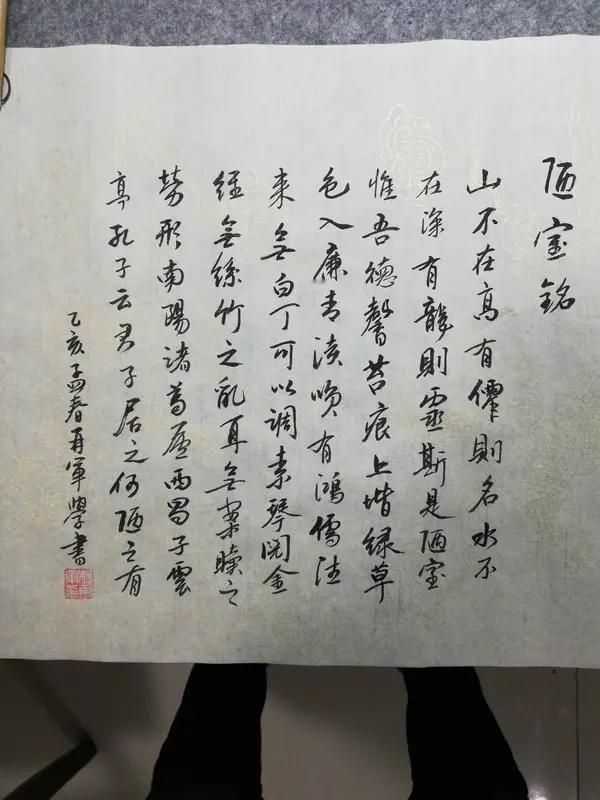 陋室銘
山不在高有僊則名水不
在深有龍則靈斯是陋室
惟吾德馨苔痕上堦緑草
色入廉青談咲有鴻儒往
来無白丁可以調素琴閲金
經無絲竹之乱耳無案牘之
勞形南陽諸葛廬西蜀子雲
亭孔子云君子居之何陋之有
乙亥孟春再軍學書